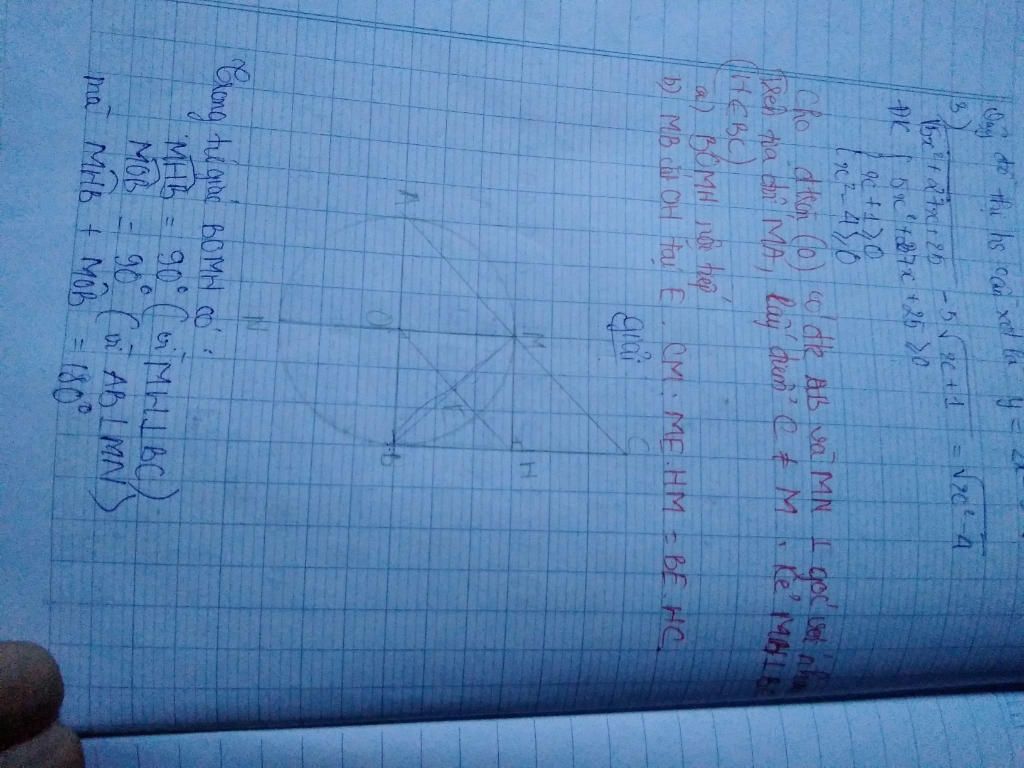 đồ thị hs cần xét là y = 2x
3) √5x² + 27x + 25 - 5√x + 1 = √x² - 4
ĐK { 5x² + 27x + 25 ≥ 0
x + 1 ≥ 0
x² - 4 ≥ 0
Cho đtròn (O) có đk AB và MN ⊥ góc với nhau
Trên tia đối MA, lấy điểm C ≠ M. Kẻ MH ⊥ BC
(H ∈ BC)
a) BOMH nội tiếp
b) MB cắt OH tại E. CM: ME.HM = BE.HC
giải
A
M
C
N
O
E
B
H
Trong tứ giác BOMH có:
MHB = 90° (vì MH ⊥ BC)
MOB = 90° (vì AB ⊥ MN)
mà MHB + MOB = 180°